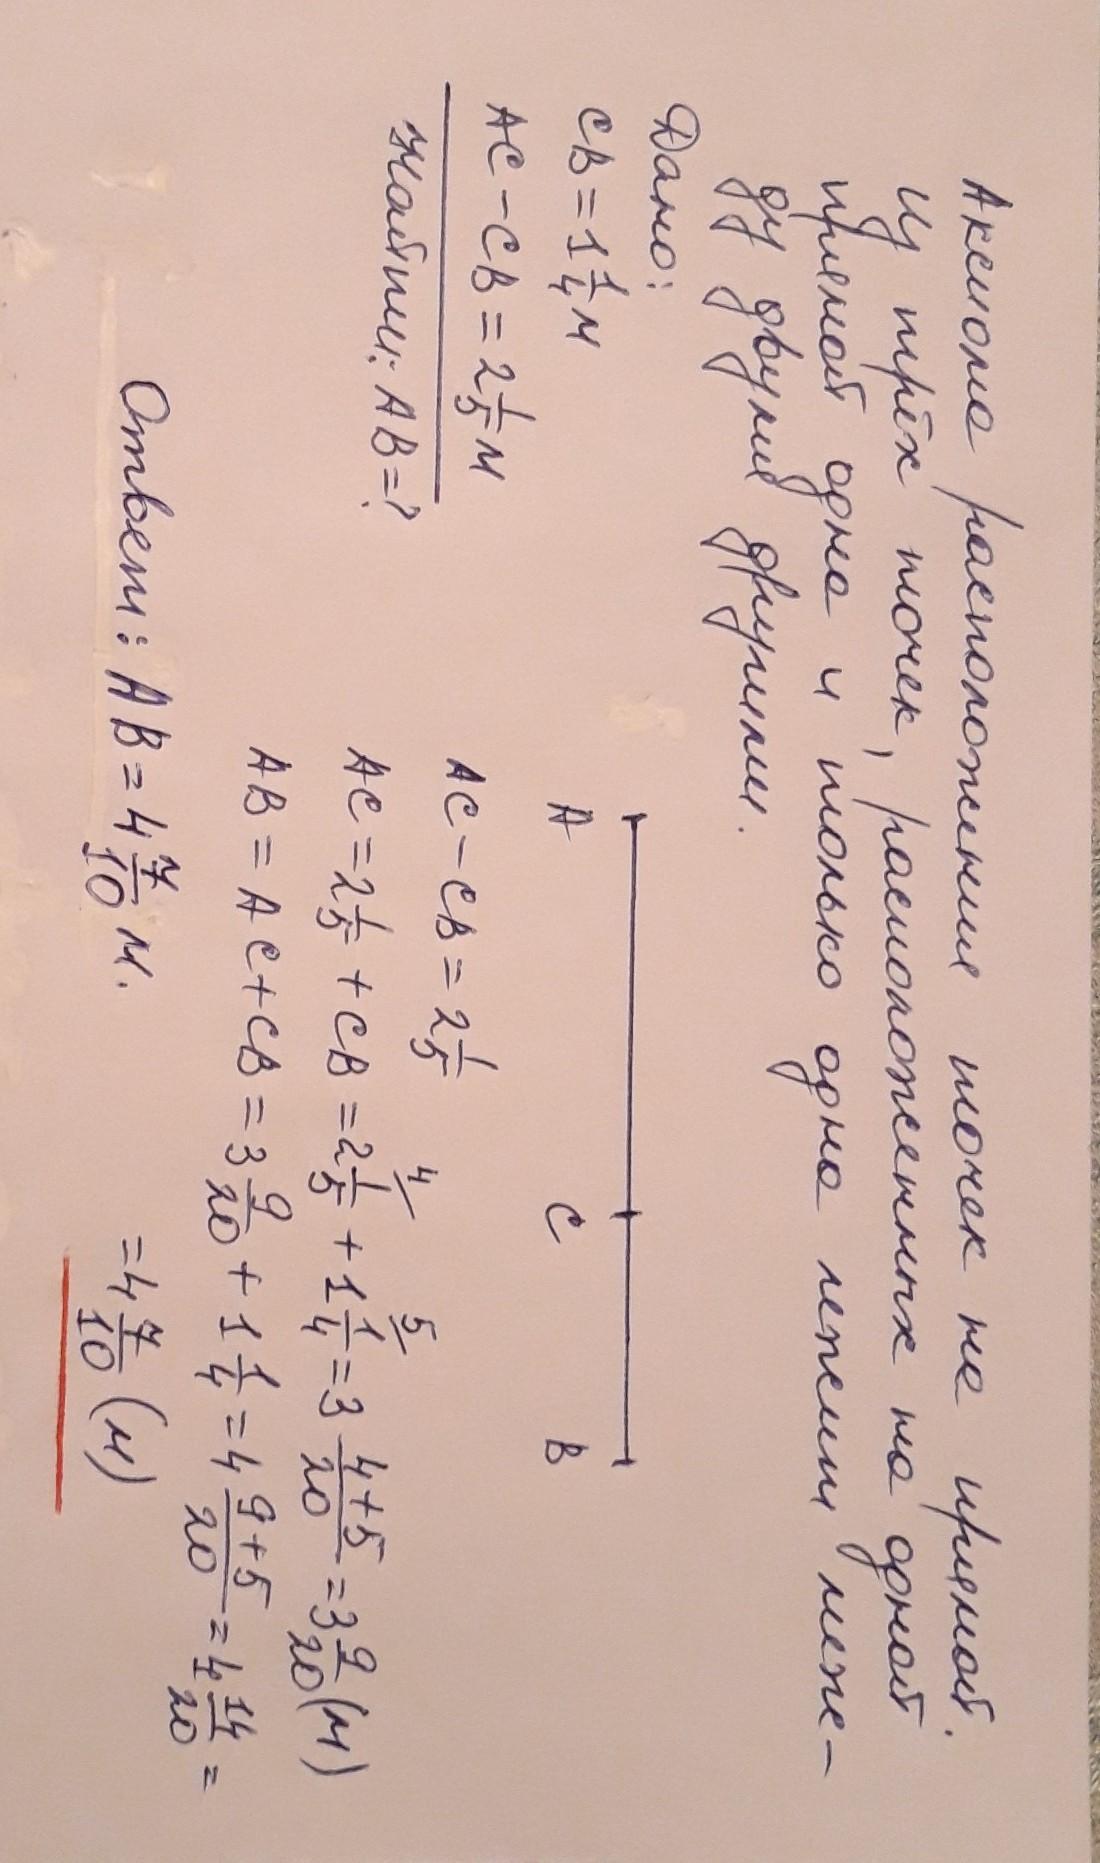 Аксиома расположения точек на прямой.
Из трёх точек, расположенных на одной
прямой одна и только одна лежит меж-
ду двумя другими.
Дано:
CB = 1 1/4 м
AC - CB = 2 1/5 м
Найти: AB = ?
A C B
AC - CB = 2 1/5
AC = 2 1/5 + CB = 2 1/5 ⁴⁄ + 1 1/4 ⁵⁄ = 3 (4+5)/20 = 3 9/20 (м)
AB = AC + CB = 3 9/20 + 1 1/4 = 4 (9+5)/20 = 4 14/20 =
= 4 7/10 (м)
Ответ: AB = 4 7/10 м.